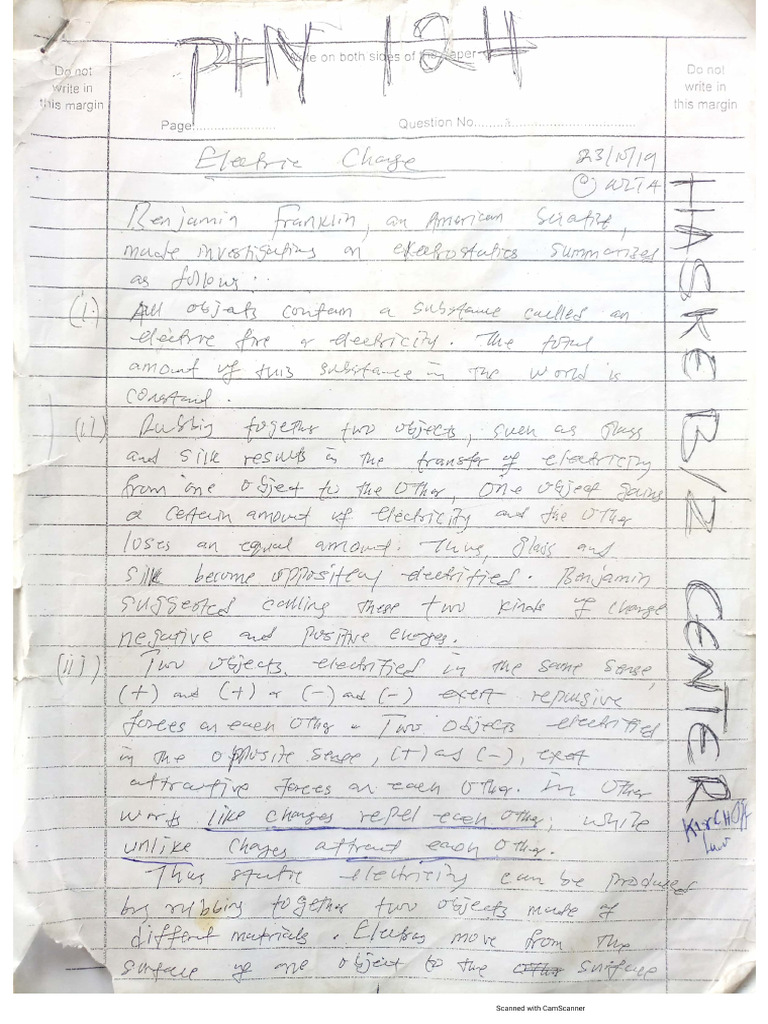 PHY 124
Write on both sides of the paper
Do not
write in
this margin
Do not
write in
this margin
Page
Question No.
Electric Charge
23/10/19
@ WLTA
Benjamin Franklin, an American Scientist,
made investigations on electrostatics summarized
as follows:
(i) All objects contain a substance called an
electric fire or electricity. The total
amount of this substance in the world is
constant.
(ii) Rubbing together two objects, such as glass
and silk results in the transfer of electricity
from one object to the other, one object gains
a certain amount of electricity and the other
loses an equal amount. Thus, glass and
silk become oppositely electrified. Benjamin
suggested calling these two kinds of charge
negative and positive charges.
(iii) Two objects electrified in the same sense,
(+) and (+) or (-) and (-) exert repulsive
forces on each other. Two objects electrified
in the opposite sense, (+) and (-), exert
attractive forces on each other. In other
words like charges repel each other, while
unlike charges attract each other.
Thus static electricity can be produced
by rubbing together two objects made of
different materials. Electrons move from the
surface of one object to the surface
HASKE B/Z CENTER
KIRCHOFF
Law
Scanned with CamScanner